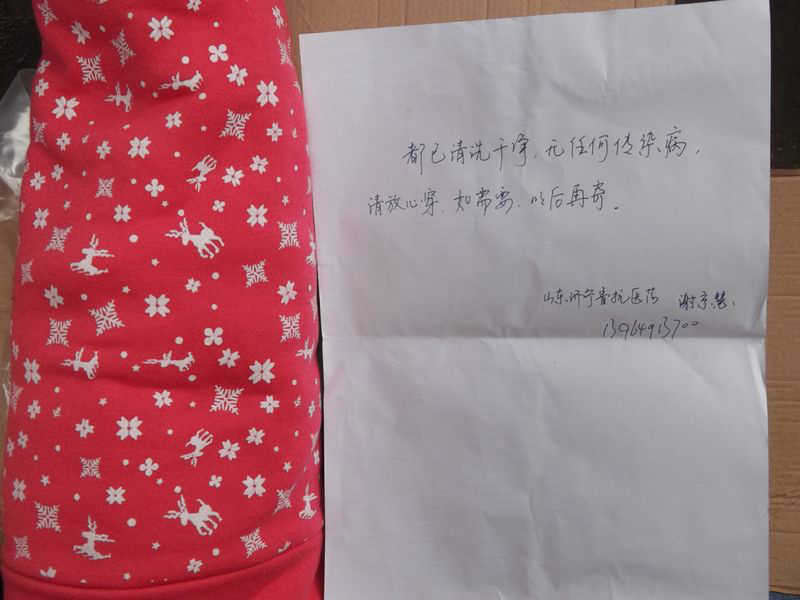 都已清洗干净,无任何传染病,
请放心穿,如需要,以后再寄。
山东济宁鲁抗医药 谢京慧,
13964913700